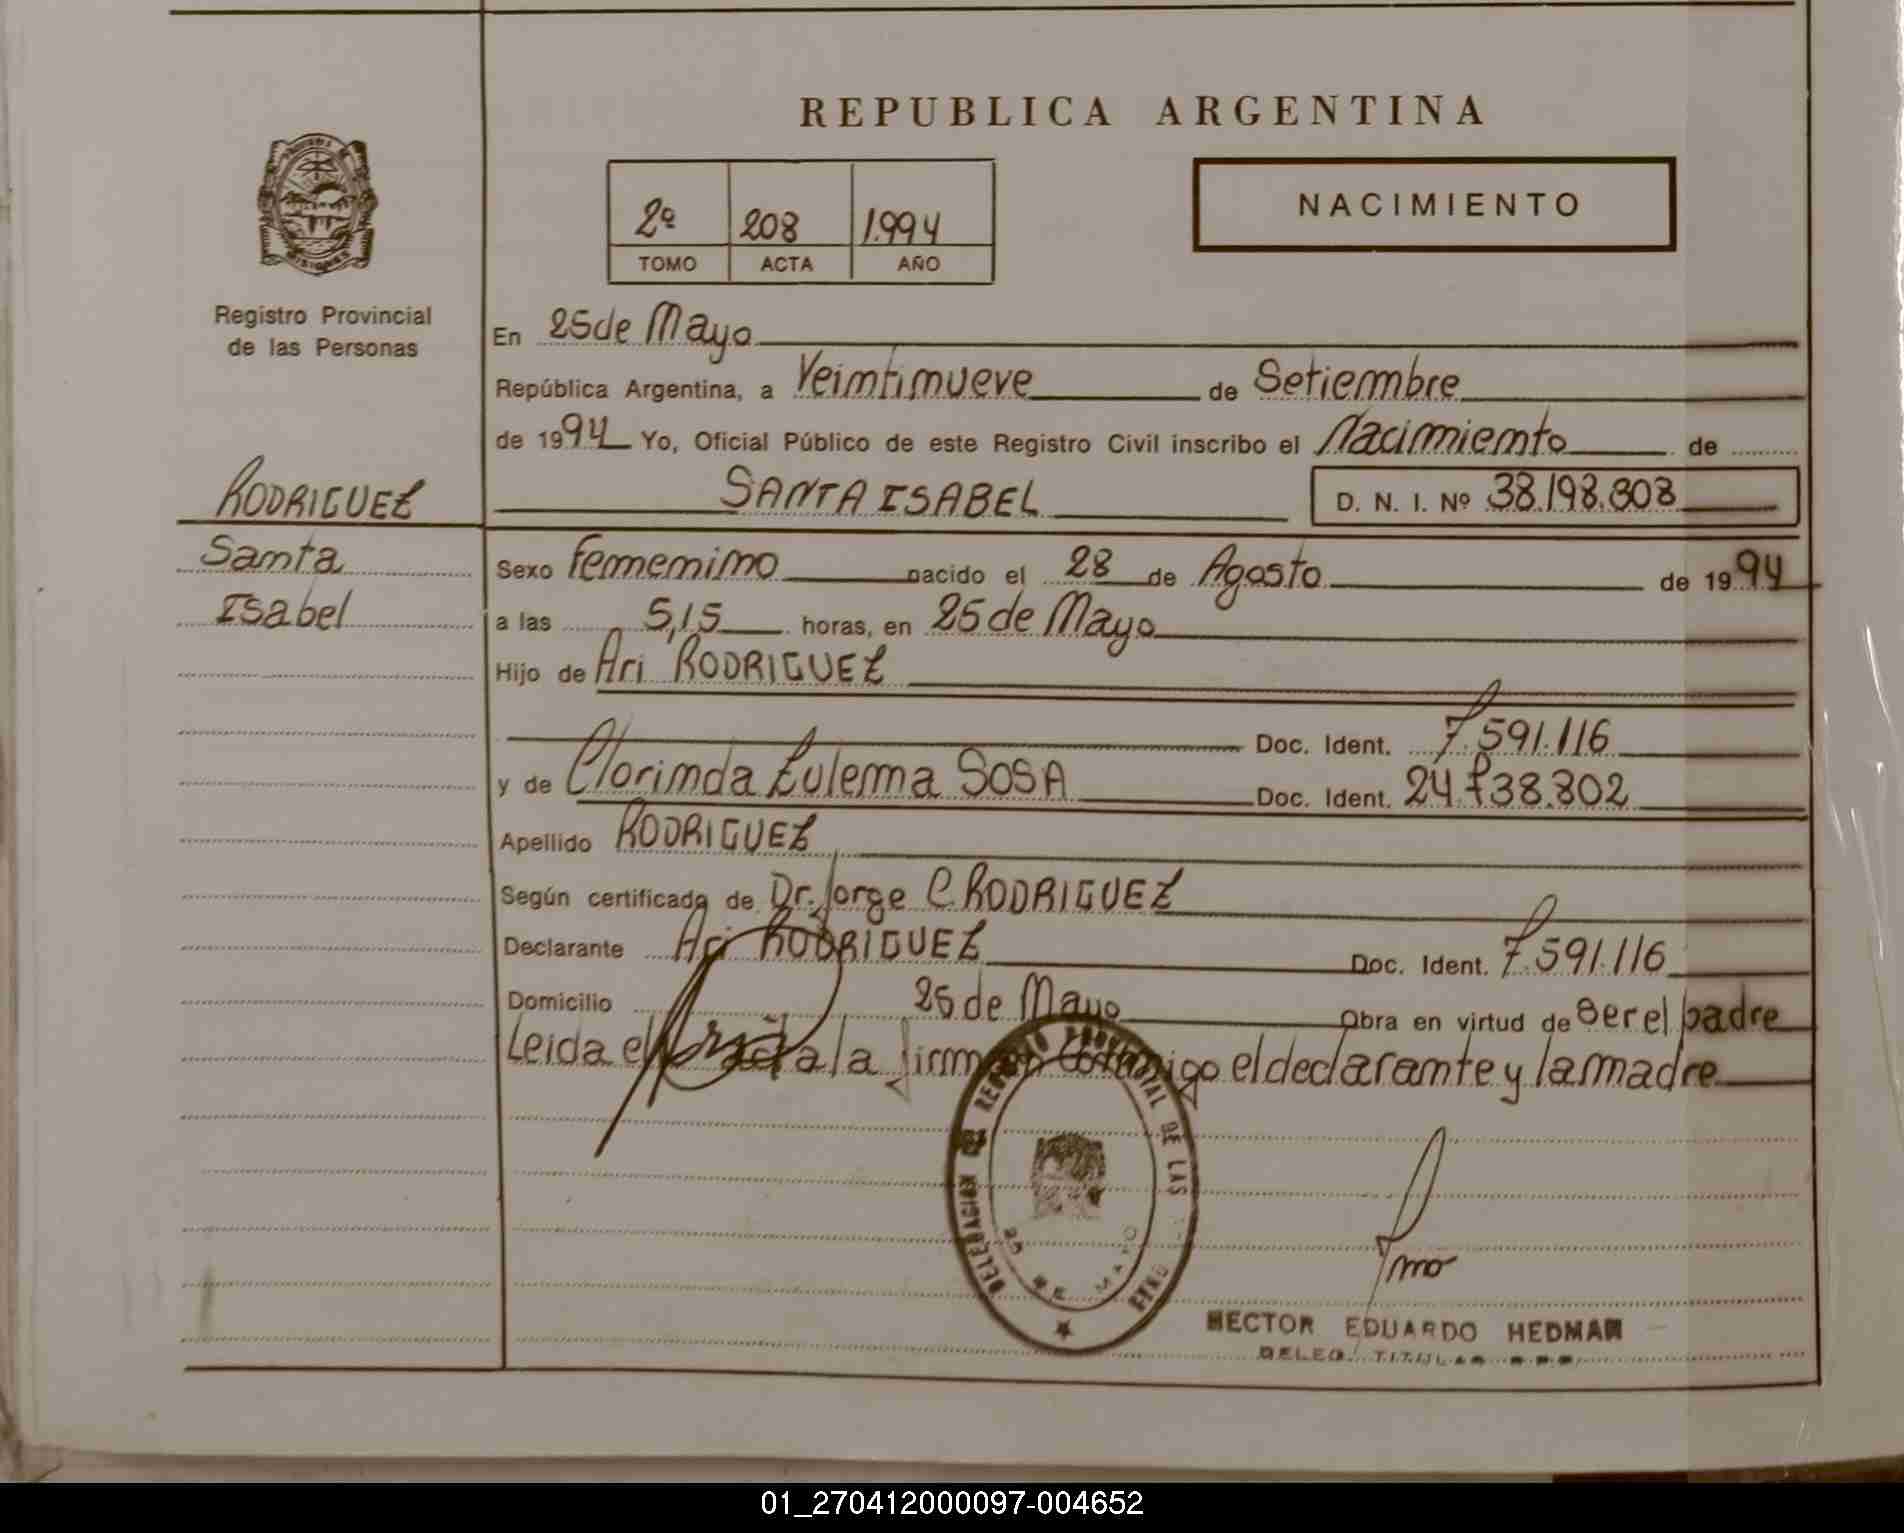 REPUBLICA ARGENTINA
NACIMIENTO
2º 208 1.994
TOMO ACTA AÑO
Registro Provincial
de las Personas
En 25 de Mayo
República Argentina, a Veintinueve de Setiembre
de 1994 Yo, Oficial Público de este Registro Civil inscribo el Nacimiento de
RODRIGUEZ
SANTA ISABEL D. N. I. Nº 38.198.808
Santa
Isabel
Sexo Femenino nacido el 28 de Agosto de 1994
a las 5,15 horas, en 25 de Mayo
Hijo de Ari RODRIGUEZ
Doc. Ident. 7.591.116
y de Clorinda Zulema SOSA Doc. Ident. 24.738.802
Apellido RODRIGUEZ
Según certificado de Dr. Jorge C. RODRIGUEZ
Declarante Ari RODRIGUEZ Doc. Ident. 7.591.116
Domicilio 25 de Mayo Obra en virtud de Ser el padre
Leida el Acta la firman conmigo el declarante y la madre
DELEGACION DEL REGISTRO PROVINCIAL DE LAS
25 DE MAYO
HECTOR EDUARDO HEDMAN
DELEG. TITULAR
01_270412000097-004652